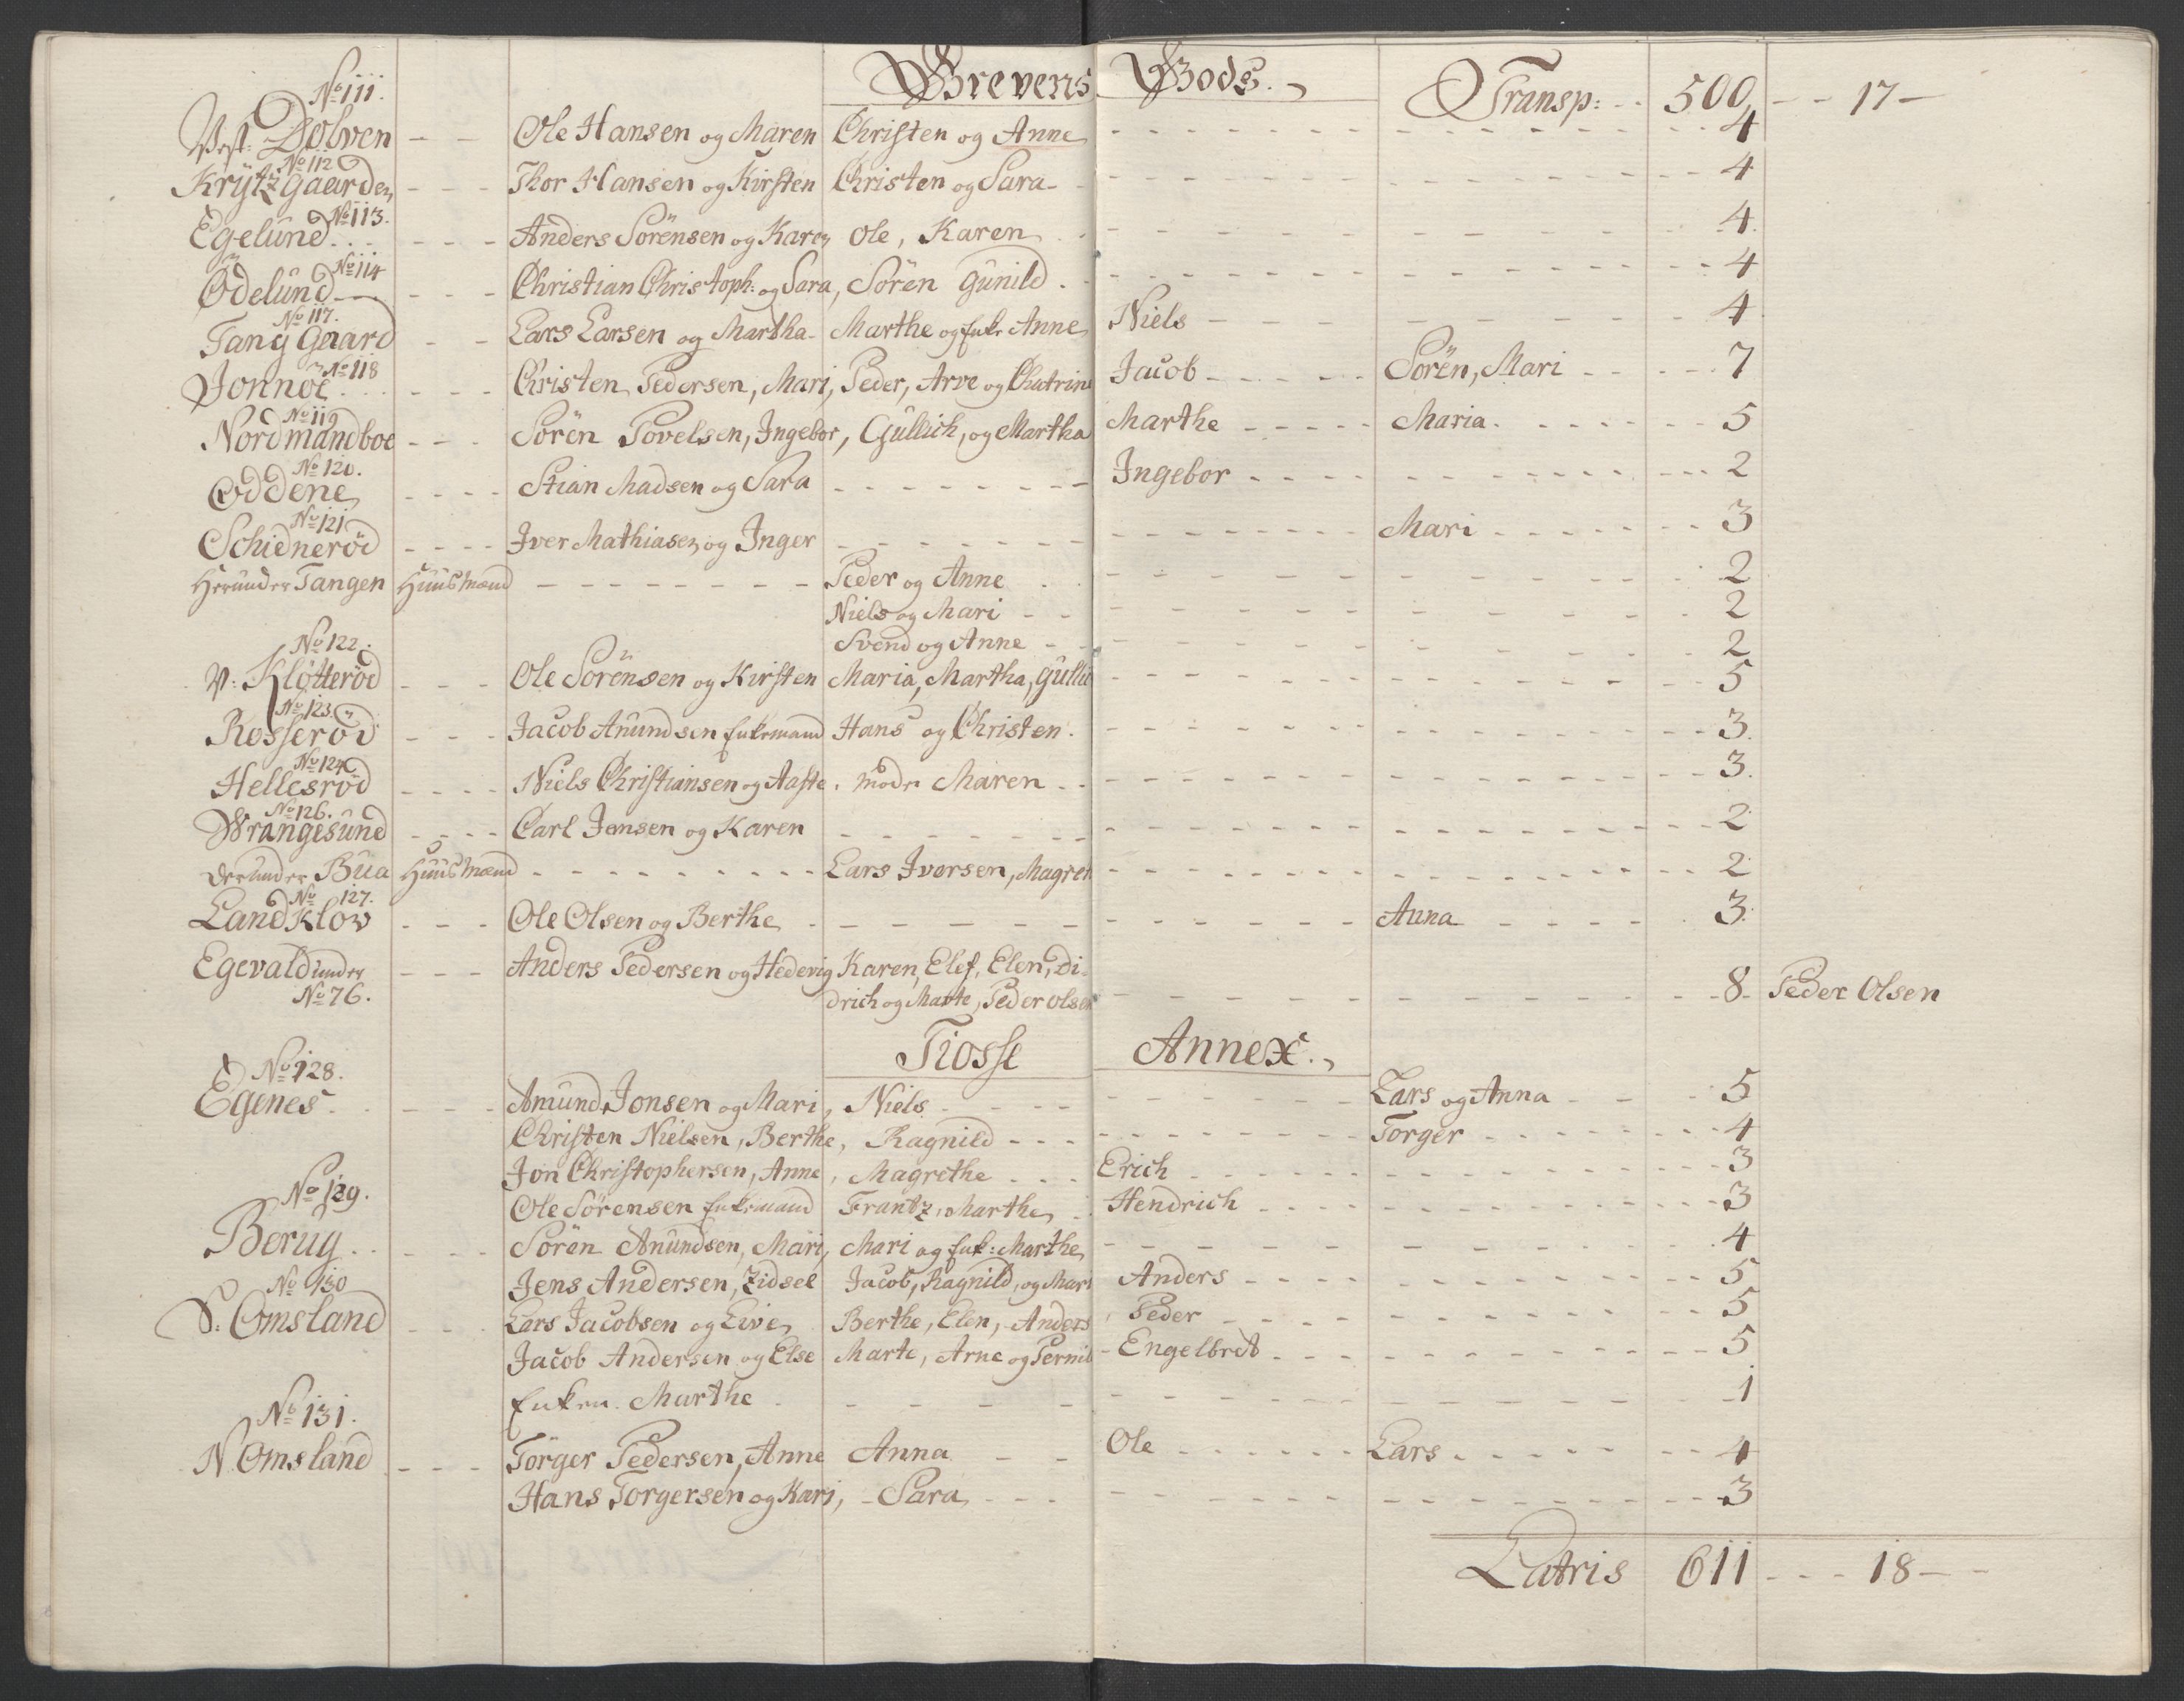 Grevens Gods.
Transp: 500 17
No 111.
Vest: Dolven Ole Hansen og Maren Christen og Anne 4
No 112
Krÿtzgaarden Thor Hansen og Kirsten Christen og Sara 4
No 113.
Egelund Anders Sörensen og Karen Ole, Karen 4
No 114
Ödelund Christian Christoph: og Sara, Sören Gunild 4
No 117.
Tang Gaard Lars Larsen og Martha Marthe og Enke Anne Niels 4
No 118
Jonnöe Christen Pedersen, Mari, Peder, Arve og Chatrine Jacob Sören, Mari 7
No 119
Nordmandboe Sören Povelsen, Ingebor, Gullich, og Martha Marthe Maria 5
No 120.
Oddene Stian Madsen og Sara Ingebor 2
No 121
Schienneröd Iver Mathiasen og Inger Mari 3
Herunder Tangen Huusmænd Peder og Anne 2
Niels og Mari 2
Svend og Anne 2
No 122.
V: Klötteröd Ole Sörensen og Kirsten Maria, Martha, Gulli 5
No 123.
Rosseröd Jacob Anundsen Enkemand Hans og Christen 3
No 124
Hellesröd Niels Christiansen og Aaste, Moder Maren 3
No 126.
Wrangesund Carl Jensen og Karen 2
Derunder Bua Huusmænd Lars Iversen, Magret 2
No 127.
Landklov Ole Olsen og Berthe Anna 3
Egevald under Anders Pedersen og Hedevig Karen, Elef, Elen, Di-
No 76. drich og Marte, Peder olsen 8 Peder Olsen
Tiosse Annex.
No 128.
Egenes Anund Jonsen og Mari, Niels Lars og Anna 5
Christen Nielsen, Berthe, Ragnild Torger 4
Jon Christophersen, Anne, Magrethe Erich 3
No 129.
Ole Sörensen Enkemand Frantz, Marthe Hendrich 3
Berug Sören Anundsen, Mari, Mari og Enk: Marthe 4
No 130
Jens Andersen, Zidsel Jacob, Ragnild, og Mari Anders 5
S: Omsland Lars Jacobsen og Live Berthe, Elen, Anders Peder 5
Jacob Andersen og Else Marte, Arne og Pernil Engelbret 5
Enken Marthe 1
No 131.
N. Omsland Törger Pedersen, Anne Anna Ole Lars 4
Hans Torgersen og Kari, Sara 3
Latris 611 18